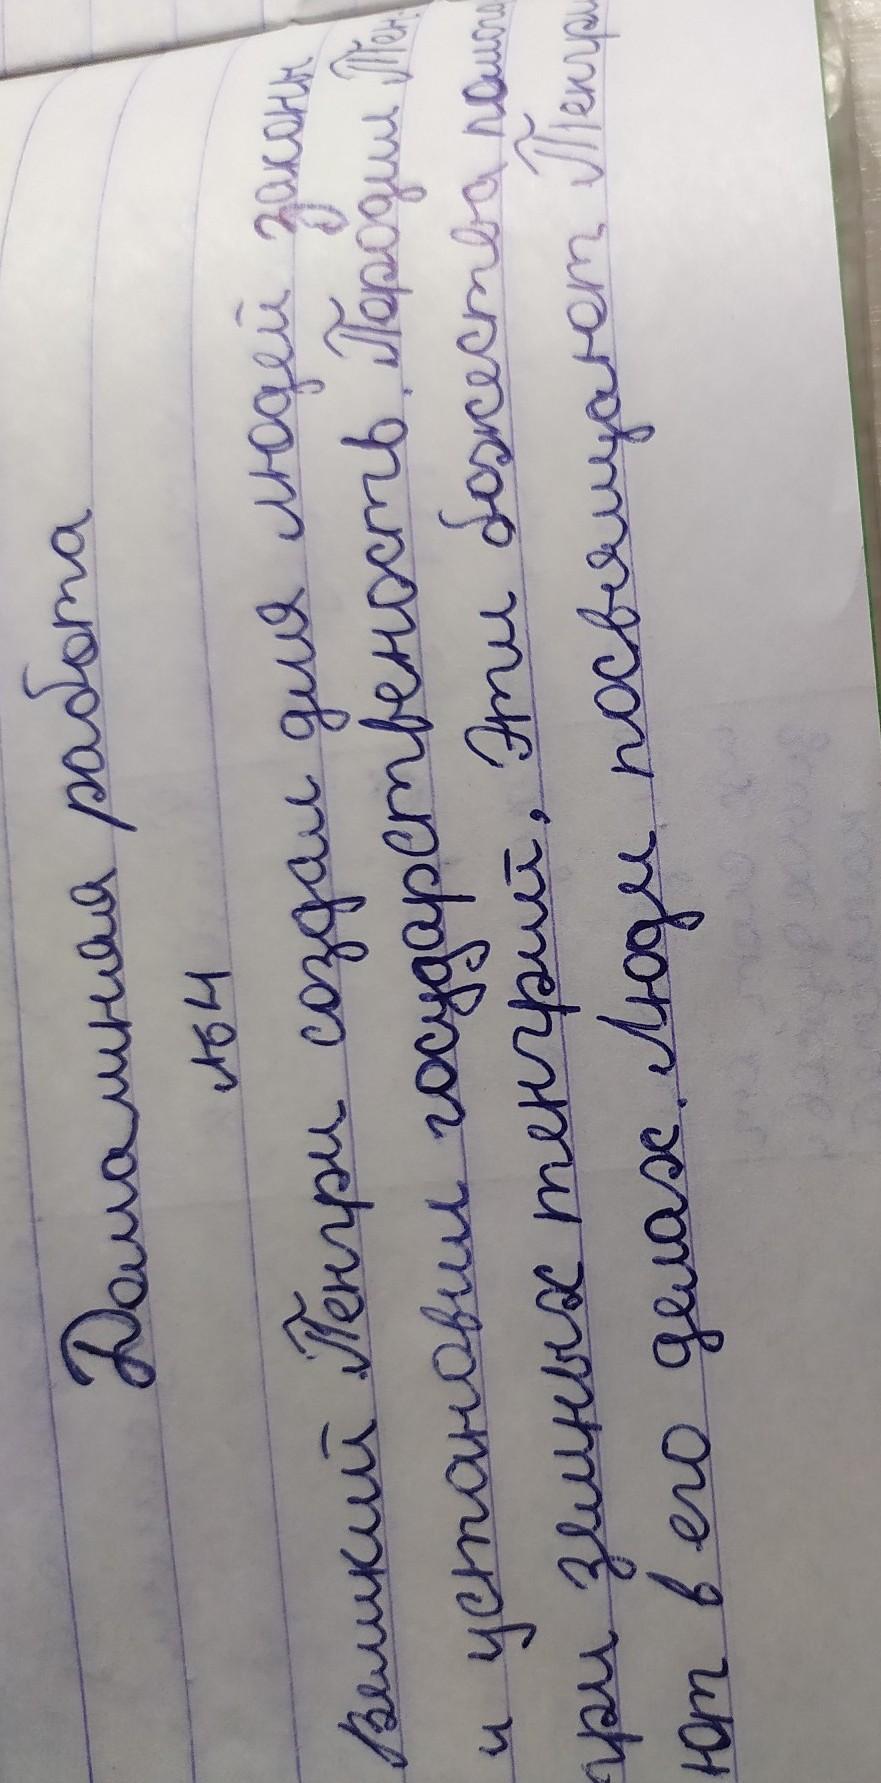 Домашняя работа
№4
Великий Тенгри создал для людей законы
и установил государственность. Породил Тен-
гри земных тенгрий, Эти божества помога
ют в его делах. Люди посвящают Тенгри